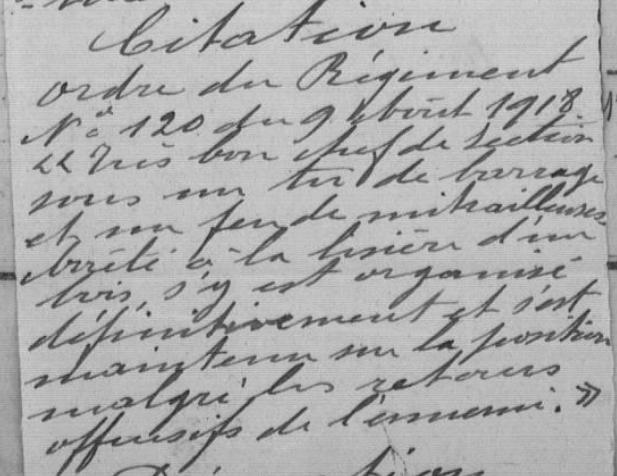 Citation
ordre du Régiment
N° 120 du 9 Août 1918
"Très bon chef de section
sous un tir de barrage
et un feu de mitrailleuses
arrêté à la lisière d'un
bois, s'y est organisé
définitivement et s'est
maintenu sur la position
malgré les retours
offensifs de l'ennemi."